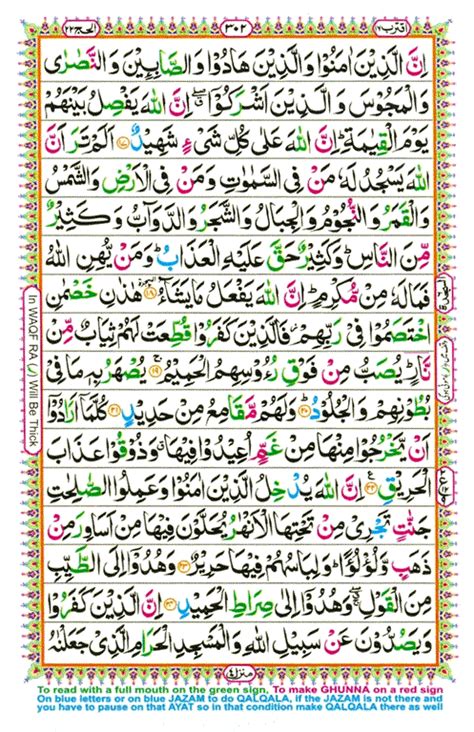 الحج ٢٢
٣٠٢
اقترب
اِنَّ الَّذِيْنَ اٰمَنُوْا وَالَّذِيْنَ هَادُوْا وَالصَّابِـِٕيْنَ وَالنَّصٰرٰى
وَالْمَجُوْسَ وَالَّذِيْنَ اَشْرَكُوْۤا ۖ اِنَّ اللّٰهَ يَفْصِلُ بَيْنَهُمْ
يَوْمَ الْقِيٰمَةِ ؕ اِنَّ اللّٰهَ عَلٰى كُلِّ شَىْءٍ شَهِيْدٌ ﴿١٧﴾ اَلَمْ تَرَ اَنَّ
اللّٰهَ يَسْجُدُ لَهٗ مَنْ فِى السَّمٰوٰتِ وَمَنْ فِى الْاَرْضِ وَالشَّمْسُ
وَالْقَمَرُ وَالنُّجُوْمُ وَالْجِبَالُ وَالشَّجَرُ وَالدَّوَآبُّ وَكَثِيْرٌ
مِّنَ النَّاسِ ؕ وَكَثِيْرٌ حَقَّ عَلَيْهِ الْعَذَابُ ؕ وَمَنْ يُّهِنِ اللّٰهُ
فَمَا لَهٗ مِنْ مُّكْرِمٍ ؕ اِنَّ اللّٰهَ يَفْعَلُ مَا يَشَآءُ ﴿١٨﴾ هٰذٰنِ خَصْمٰنِ
اخْتَصَمُوْا فِىْ رَبِّهِمْ فَالَّذِيْنَ كَفَرُوْا قُطِّعَتْ لَهُمْ ثِيَابٌ مِّنْ
نَّارٍ ؕ يُصَبُّ مِنْ فَوْقِ رُءُوْسِهِمُ الْحَمِيْمُ ﴿١٩﴾ يُصْهَرُ بِهٖ مَا فِىْ
بُطُوْنِهِمْ وَالْجُلُوْدُ ﴿٢٠﴾ وَلَهُمْ مَّقَامِعُ مِنْ حَدِيْدٍ ﴿٢١﴾ كُلَّمَاۤ اَرَادُوْۤا
اَنْ يَّخْرُجُوْا مِنْهَا مِنْ غَمٍّ اُعِيْدُوْا فِيْهَا ۗ وَذُوْقُوْا عَذَابَ
الْحَرِيْقِ ﴿٢٢﴾ اِنَّ اللّٰهَ يُدْخِلُ الَّذِيْنَ اٰمَنُوْا وَعَمِلُوا الصّٰلِحٰتِ
جَنّٰتٍ تَجْرِىْ مِنْ تَحْتِهَا الْاَنْهٰرُ يُحَلَّوْنَ فِيْهَا مِنْ اَسَاوِرَ مِنْ
ذَهَبٍ وَّلُؤْلُؤًا ؕ وَلِبَاسُهُمْ فِيْهَا حَرِيْرٌ ﴿٢٣﴾ وَهُدُوْۤا اِلَى الطَّيِّبِ
مِنَ الْقَوْلِ ۖ وَهُدُوْۤا اِلٰى صِرَاطِ الْحَمِيْدِ ﴿٢٤﴾ اِنَّ الَّذِيْنَ كَفَرُوْا
وَيَصُدُّوْنَ عَنْ سَبِيْلِ اللّٰهِ وَالْمَسْجِدِ الْحَرَامِ الَّذِىْ جَعَلْنٰهُ
منزل٤
In WAQF RA (ر) Will Be Thick
To read with a full mouth on the green sign, To make GHUNNA on a red sign
On blue letters or on blue JAZAM to do QALQALA, if the JAZAM is not there and
you have to pause on that AYAT so in that condition make QALQALA there as well